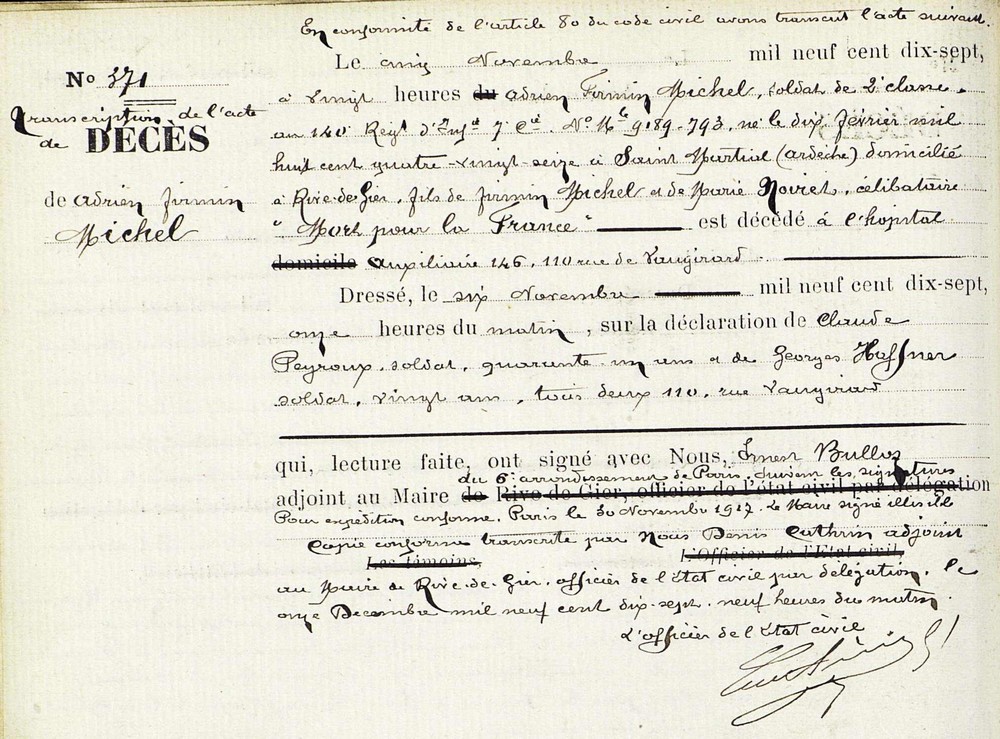 En conformité de l'article 80 du code civil avons transcrit l'acte suivant.
Le cinq Novembre mil neuf cent dix-sept,
No 371
à vingt heures du adrien Firmin Michel, soldat de 2e classe
Transcription de l'acte
de DÉCÈS
au 140e Regt d'Infie 7e Cie. No Mle 9189-793, né le dix février mil
huit cent quatre-vingt-seize à Saint Martial (ardèche) domicilié
de adrien firmin
Michel
à Rive-de-Gier, fils de firmin Michel et de Marie Noiret, célibataire
"Mort pour la France" est décédé à l'hopital
domicile auxiliaire 146, 110 rue de Vaugirard
Dressé, le six Novembre mil neuf cent dix-sept,
onze heures du matin, sur la déclaration de Claude
Peyroux, soldat, quarante un ans et de Georges Haffner
soldat, vingt ans, tous deux 110, rue Vaugirard
qui, lecture faite, ont signé avec Nous, Ernest Bulloz
du 6e arrondissement de Paris, suivent les signatures
adjoint au Maire de Rive-de-Gier, officier de l'état civil par délégation
Pour expédition conforme. Paris le 30 Novembre 1917. Le Maire signé illisible
Copie conforme transcrite par Nous Denis Cathrin adjoint
Les témoins, L'Officier de l'Etat civil,
au Maire de Rive-de-Gier, officier de l'état civil par délégation, le
onze Decembre mil neuf cent dix-sept, neuf heures du matin.
L'officier de l'état civil